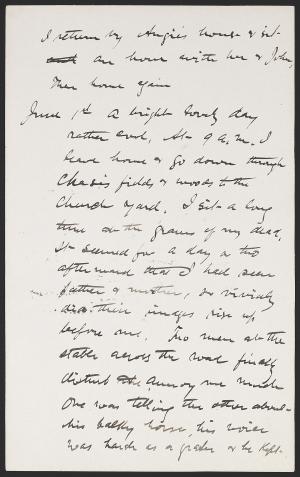 I return by Angie's house & sit
an hour with her & John,
Then home again
June 1st A bright lovely day
rather cool, At 9 a.m. I
leave home & go down through
Chases fields & woods to the
Church yard. I sit a long
time on the graves of my dead,
It seemed for a day or two
afterward that I had seen
father & mother, so vividly
did their images rise up
before me. Two men at the
stable across the road finally
disturb & annoy me much
One was telling the other about
his balky horse, his voice
was harsh as a grater & he kept